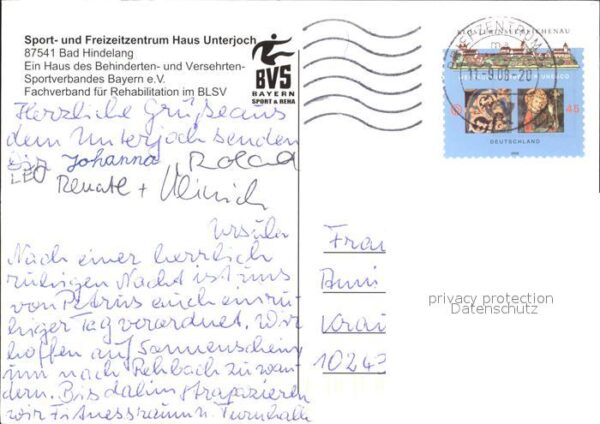 Sport- und Freizeitzentrum Haus Unterjoch
87541 Bad Hindelang
Ein Haus des Behinderten- und Versehrten-
Sportverbandes Bayern e.V.
Fachverband für Rehabilitation im BLSV
BVS
BAYERN
SPORT & REHA
Herzliche Grüße aus
dem Unterjoch senden
Johanna Roland
LEO Renate + Heinrich
Ursula
Nach einer herrlich
ruhigen Nacht ist uns
von Petrus auch ein ru-
higer Tag verordnet. Wir
hoffen auf Sonnenschein
um nach Rehbach zu wan-
dern. Bis dahin strapazieren
wir Fitnessraum u. Turnhalle
KLOSTERINSEL REICHENAU
45
DEUTSCHLAND
Frau
Anni
10243
privacy protection
Datenschutz